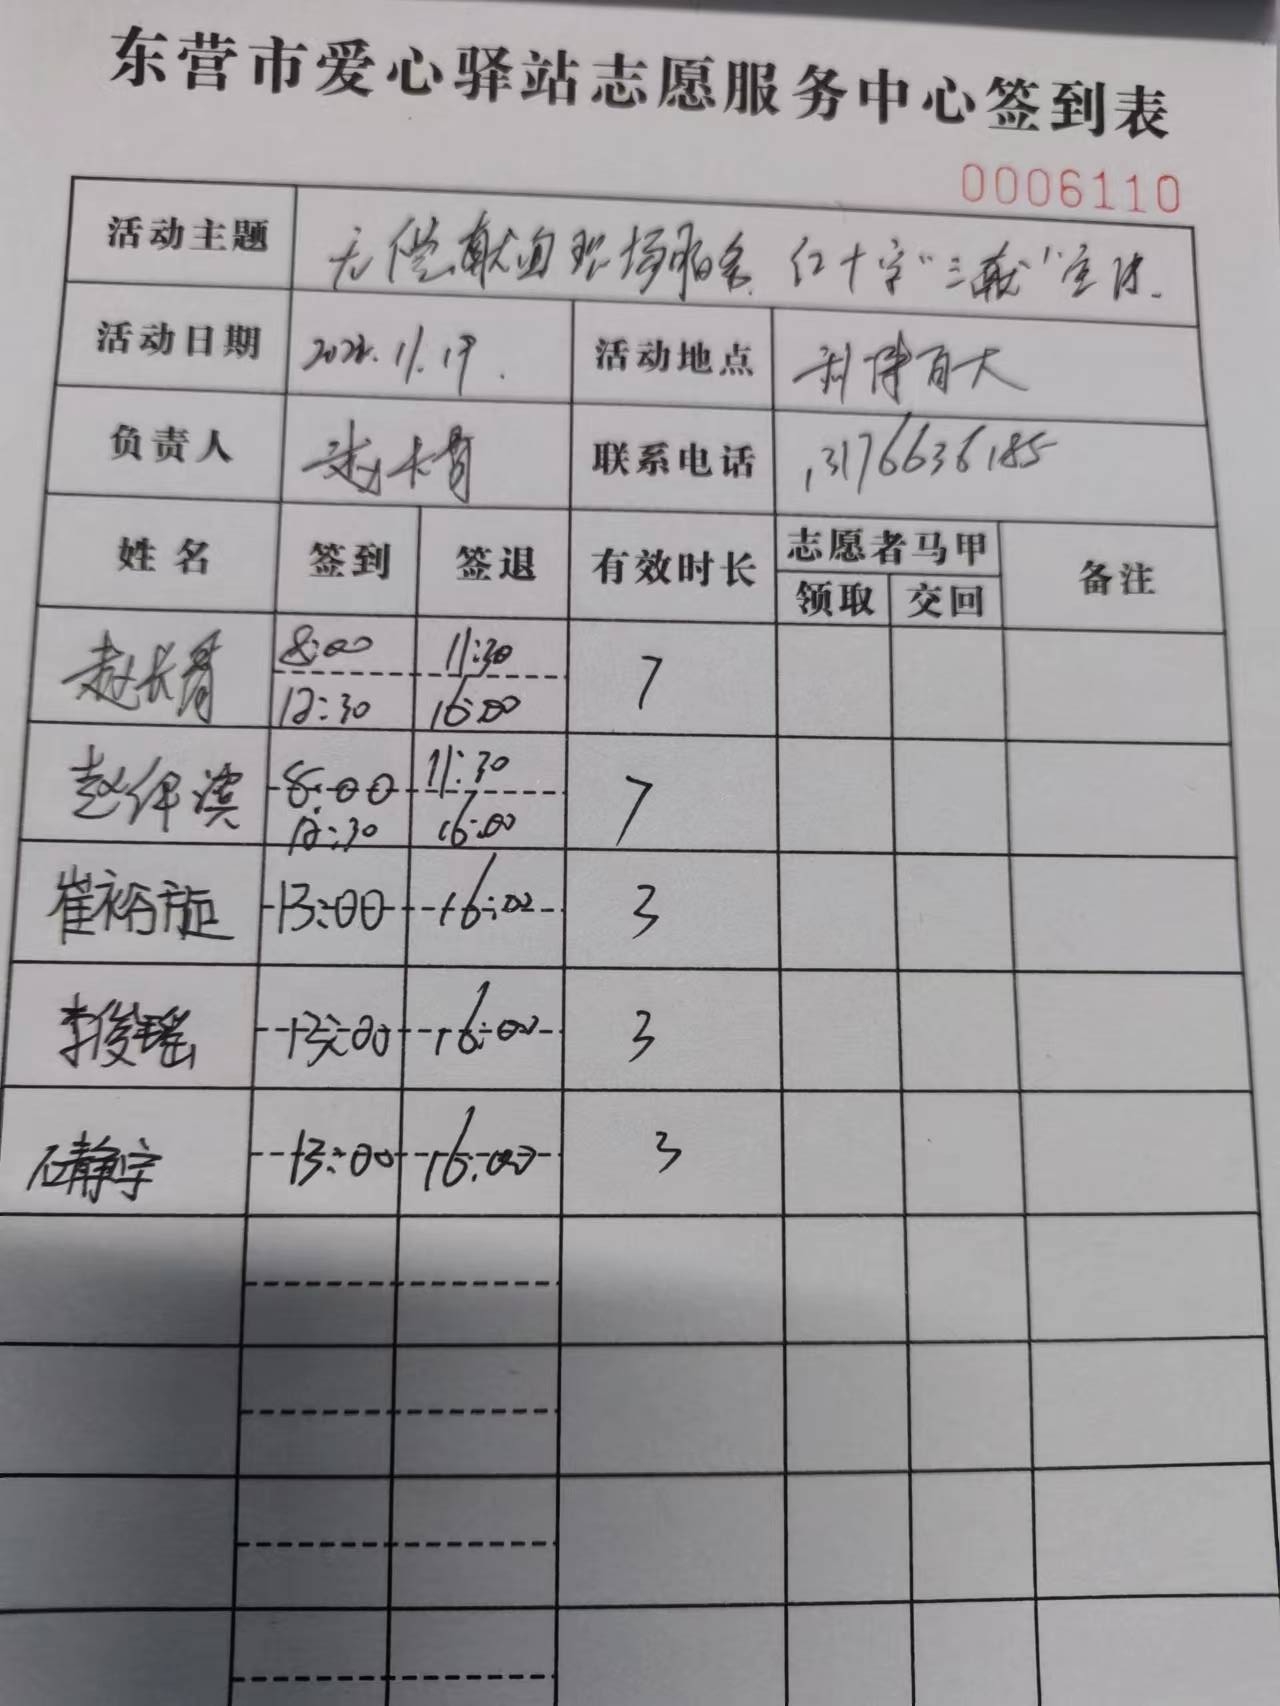 东营市爱心驿站志愿服务中心签到表
0006110
活动主题 无偿献血现场服务 红十字"三献"宣传.
活动日期 11.19. 活动地点 利津百大
负责人 赵长青 联系电话 13176636185
姓名 签到 签退 有效时长 志愿者马甲 备注
领取 交回
赵长青 8:00 11:30 7
12:30 16:00
赵 8:00 11:30 7
12:30 16:00
崔裕 13:00 16:00 3
李俊瑶 13:00 16:00 3
石静宇 13:00 16:00 3